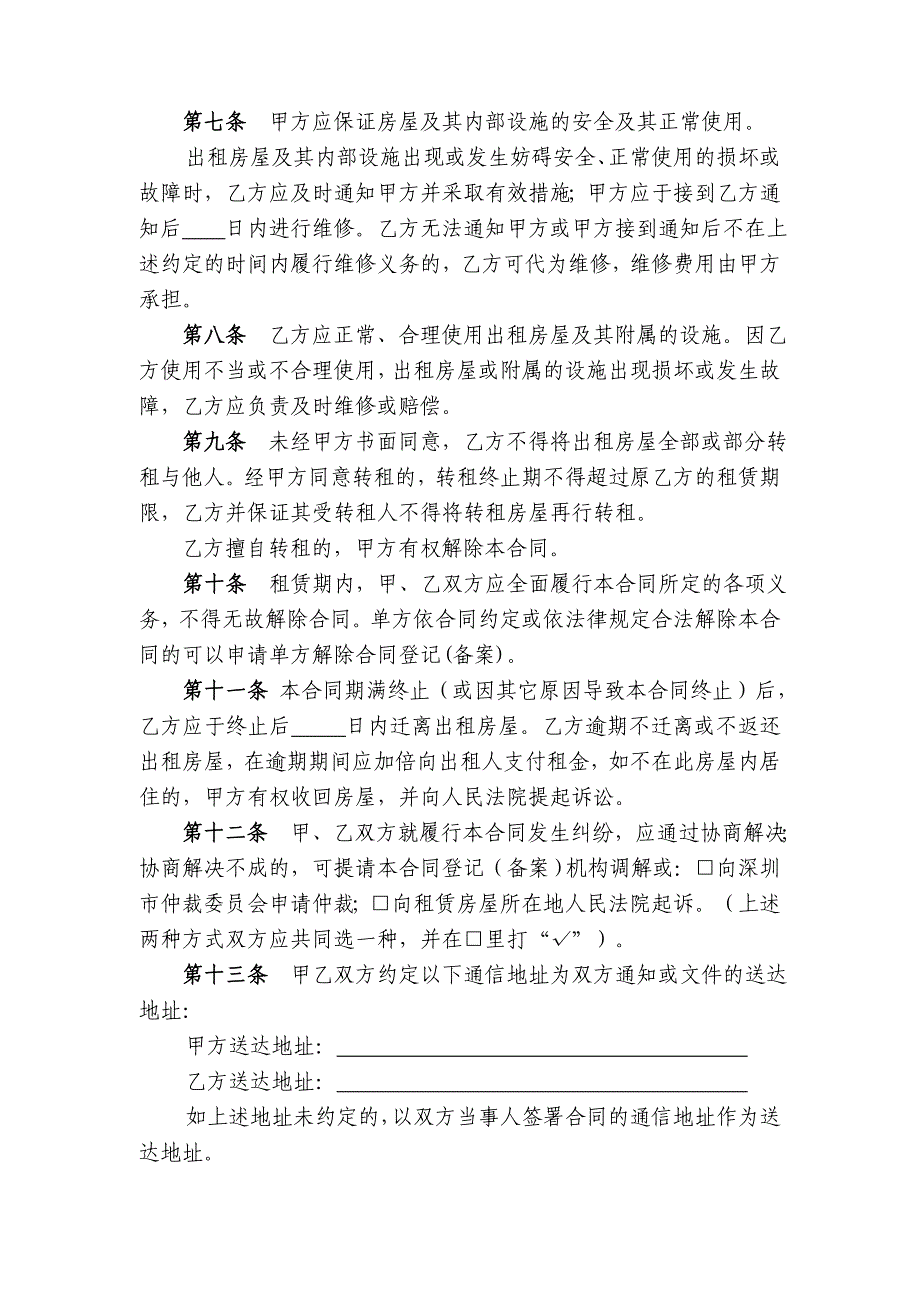 第七条　甲方应保证房屋及其内部设施的安全及其正常使用。
出租房屋及其内部设施出现或发生妨碍安全、正常使用的损坏或
故障时，乙方应及时通知甲方并采取有效措施；甲方应于接到乙方通
知后____日内进行维修。乙方无法通知甲方或甲方接到通知后不在上
述约定的时间内履行维修义务的，乙方可代为维修，维修费用由甲方
承担。
第八条　乙方应正常、合理使用出租房屋及其附属的设施。因乙
方使用不当或不合理使用，出租房屋或附属的设施出现损坏或发生故
障，乙方应负责及时维修或赔偿。
第九条　未经甲方书面同意，乙方不得将出租房屋全部或部分转
租与他人。经甲方同意转租的，转租终止期不得超过原乙方的租赁期
限，乙方并保证其受转租人不得将转租房屋再行转租。
乙方擅自转租的，甲方有权解除本合同。
第十条　租赁期内，甲、乙双方应全面履行本合同所定的各项义
务，不得无故解除合同。单方依合同约定或依法律规定合法解除本合
同的可以申请单方解除合同登记(备案)。
第十一条 本合同期满终止（或因其它原因导致本合同终止）后，
乙方应于终止后_____日内迁离出租房屋。乙方逾期不迁离或不返还
出租房屋，在逾期期间应加倍向出租人支付租金，如不在此房屋内居
住的，甲方有权收回房屋，并向人民法院提起诉讼。
第十二条　甲、乙双方就履行本合同发生纠纷，应通过协商解决；
协商解决不成的，可提请本合同登记（备案）机构调解或：□向深圳
市仲裁委员会申请仲裁；□向租赁房屋所在地人民法院起诉。（上述
两种方式双方应共同选一种，并在□里打“√”）。
第十三条　甲乙双方约定以下通信地址为双方通知或文件的送达
地址：
甲方送达地址：______________________________________
乙方送达地址：______________________________________
如上述地址未约定的，以双方当事人签署合同的通信地址作为送
达地址。